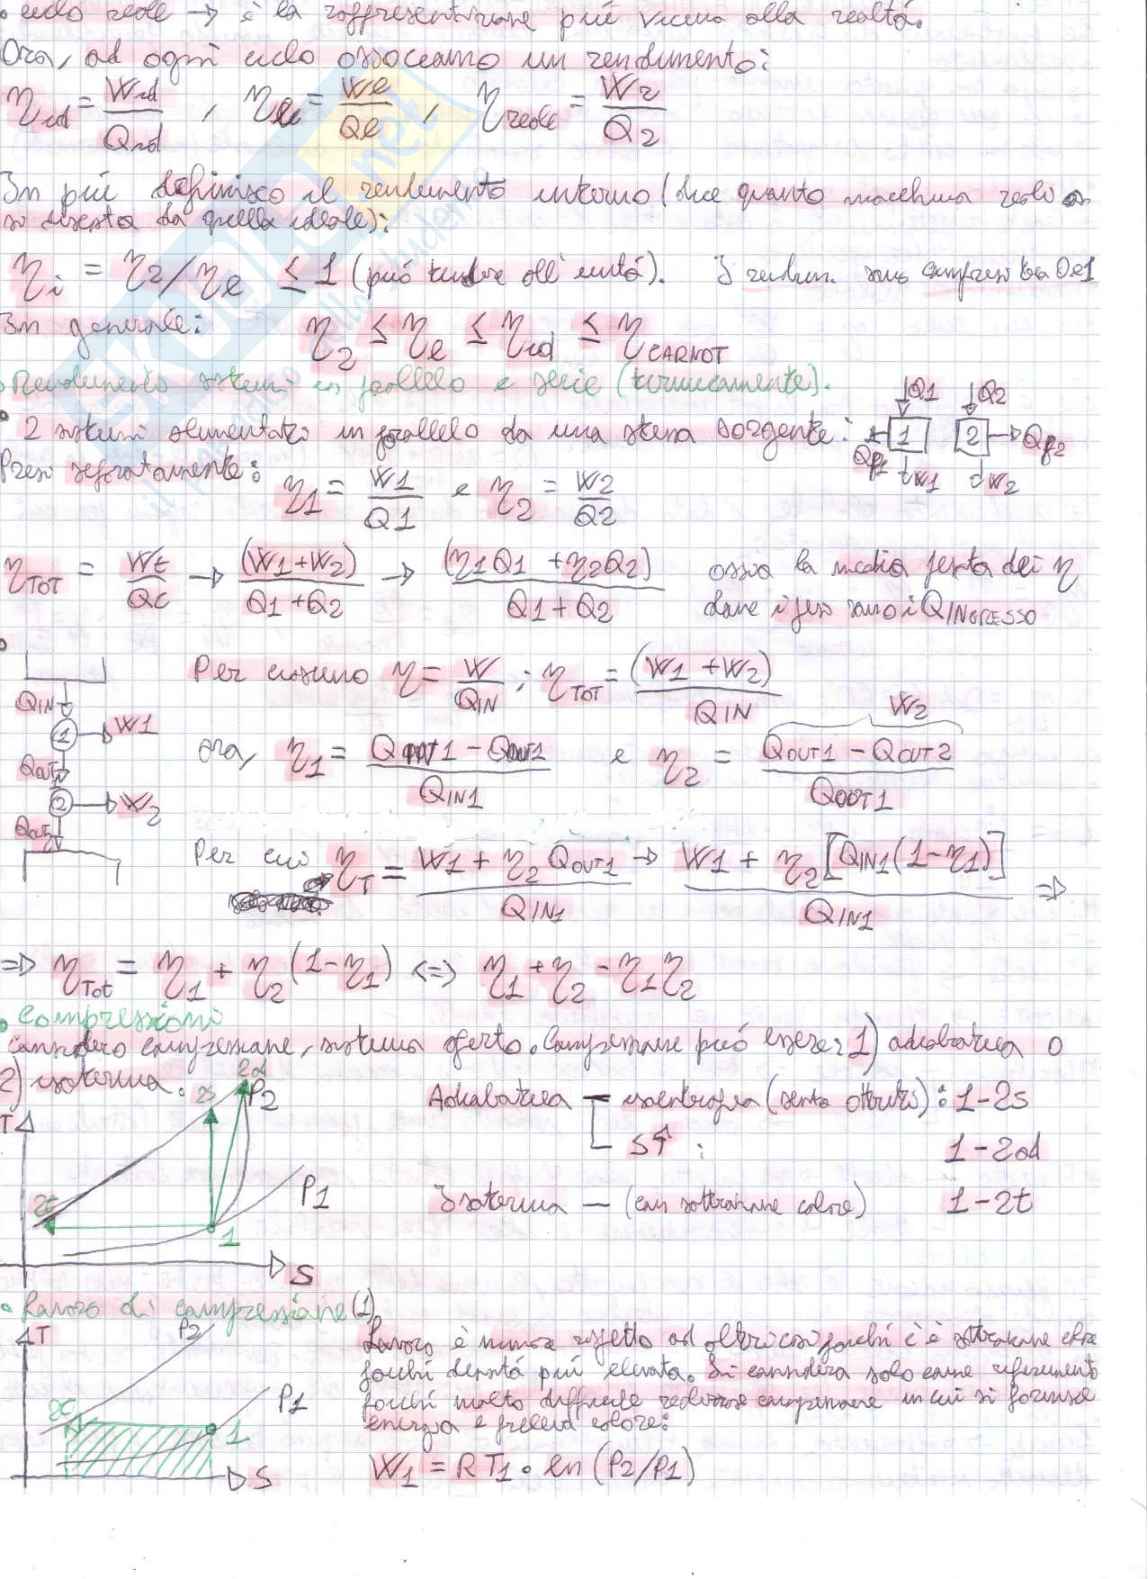 • ciclo reale → è la rappresentazione più vicina alla realtà.
Ora, ad ogni ciclo associamo un rendimento:
ηid = Wid/Qid , ηl = Wl/Ql , ηreale = W2/Q2
In più definisco il rendimento interno (dice quanto macchina reale
si discosta da quella ideale):
ηi = η2/ηl ≤ 1 (può tendere all'unità). I rendim. sono compresi tra 0 e 1
In generale: η2 ≤ ηl ≤ ηid ≤ ηCARNOT
• Rendimento sistemi in parallelo e serie (termicamente).
• 2 sistemi alimentati in parallelo da una stessa sorgente:
Q1 Q2
1 2
Qf1 Qf2
W1 W2
Presi separatamente: η1 = W1/Q1 e η2 = W2/Q2
ηTOT = Wt/Qc → (W1+W2)/(Q1+Q2) → (η1Q1 + η2Q2)/(Q1+Q2) ossia la media pesata dei η
dove i pesi sono i QINGRESSO
Per ciascuno η = W/QIN ; ηTOT = (W1 + W2)/QIN
QIN
1 W1
QOUT1
2 W2
QOUT2
W2
ora, η1 = /QIN1 e η2 = (QOUT1 − QOUT2)/QOUT1
Per cui ηT = (W1 + η2 QOUT1)/QIN1 → (W1 + η2[QIN1(1−η1)])/QIN1 ⇒
⇒ ηTot = η1 + η2 (1−η1) ⇔ η1 + η2 − η1η2
• Compressioni
Considero compressione, sistema aperto. Compressione può essere: 1) adiabatica o
2) isoterma.
Adiabatica — isoentropia (senza attriti): 1−2s
S↑ : 1−2ad
Isoterma — (con sottrazione calore) 1−2t
T
2s 2d P2
2t P1
1
S
• Lavoro di compressione (1)
T
P2
P1
1
S
Lavoro è minore rispetto ad altri casi perché c'è sottrazione
perché densità più elevata. Si considera solo come riferimento
perché molto difficile realizzare compressione in cui si fornisce
energia e preleva calore:
W1 = RT1 • ln (P2/P1)